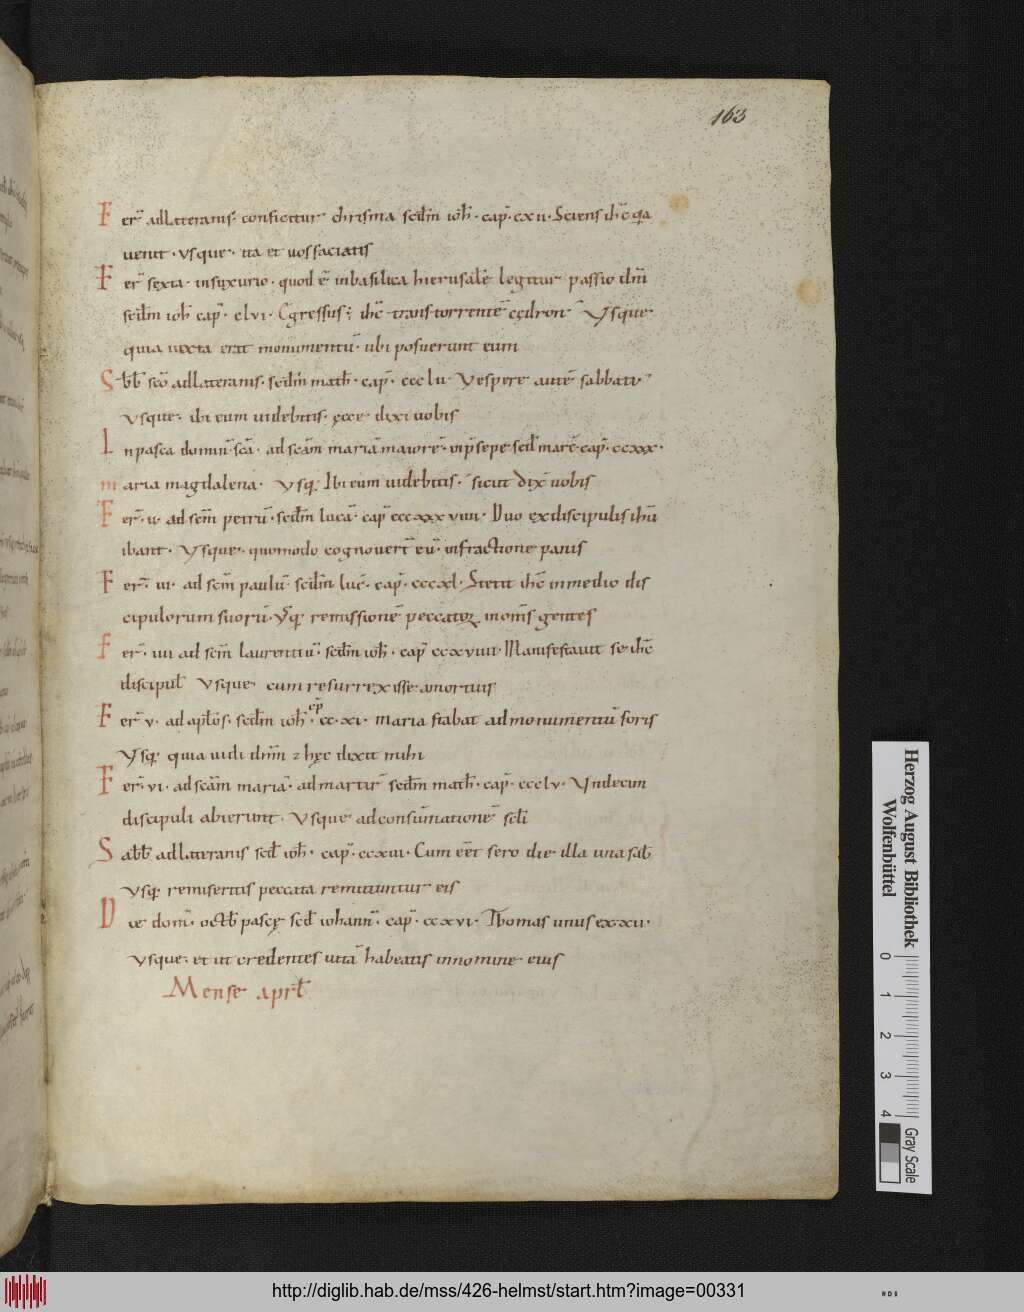 163
Fer̄ adLateranis conficitur chrisma scdm̄ ioh̄ · cap̄ · cxii · Sciens ih̄c q̄a
uenit · vsque · ita et uos faciatis
Fer̄ sexta · insyxurio · quod ē inbasilica hierusalē legitur passio dn̄i
scdm̄ ioh̄ cap̄ · clvi · Egressus ih̄c transtorrentē cędron Vsque
quia iuxta erat monumentū · ubi posuerunt eum
Sbb̄ scō adLateranis · scdm̄ math̄ · cap̄ · ccclii Vespere autē sabbati
vsque · ibi eum uidebitis · ęcce dixi uobis
In pasca domin̄ scā · ad scām mariā maiorē · inp̄sepe scd̄ marc̄ cap̄ · ccxxx ·
maria magdalena · Vsq; Ibi eum uidebitis · sicut dix̄ uobis
Fer̄ · ii · ad scm̄ petrū · scdm̄ lucā · cap̄ cccxxxviiii · Duo ex discipulis ihū
ibant · Vsque · quomodo cognouer̄t eū · infractione panis
Fer̄ · iii · ad scm̄ paulū · scdm̄ luc̄ · cap̄ · cccxl · Stetit ih̄c in medio dis
cipulorum suorū · Vsq; remissionē peccatoꝝ in om̄s gentes
fer̄ · iiii ad scm̄ laurentiū · scdm̄ ioh̄ · cap̄ ccxviiii · Manifestauit se ih̄c
discipul̄ Vsque cum resurrexisse amortuis
Fer̄ v · ad apl̄os · scdm̄ ioh̄ · cap̄ cc · xi · maria stabat admonumentū foris
Vsq; quia uidi dn̄m ⁊ hęc dixit mihi
Fer̄ · vi · ad scām mariā · ad martir̄ scdm̄ math̄ · cap̄ · ccclv · Vndecim
discipuli abierunt · Vsque ad consum̄ationē scl̄i
Sabb̄ adLateranis scd̄ ioh̄ · cap̄ · ccxiii · Cum eēt sero die illa una sab̄
Vsq; remiseritis peccata remittuntur eis
Die dom̄ · octb̄ pascę scd̄ iohann̄ · cap̄ · ccxvi · Thomas unus ex xii ·
Vsque · et ut credentes uitā habeatis in nomine eius
Mense apr̄l
Herzog August Bibliothek
Wolfenbüttel
0 1 2 3 4
Gray Scale
http://diglib.hab.de/mss/426-helmst/start.htm?image=00331